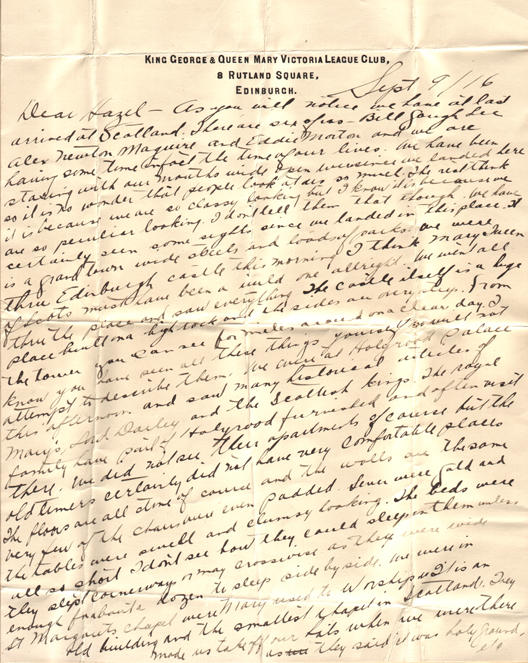 KING GEORGE & QUEEN MARY VICTORIA LEAGUE CLUB,
8 RUTLAND SQUARE,
EDINBURGH.
Sept 9/16
Dear Hazel - As you will notice we have at last
arrived at Scotland. There are six of us - Bill Gough Lee
Alex Newton Maguire and Eddie Morton and we are
having some time in fact the time of our lives. We have been
staring with our mouths wide open ever since we landed here
so it is no wonder that people look at us so much. The rest think
it is because we are so classy looking but I know it is because we
are so peculiar looking. I don't tell them that though. We have
certainly seen some sights since we landed in this place. It
is a grand town wide streets and loads of parks. We were
thru Edinburgh castle this morning. I think Mary Queen
of Scots must have been a wild one allright. We went all
thru the place and saw everything. The castle itself is a huge
place built on a high rock and the sides are very steep. From
the tower you can see for miles around on a clear day. I
know you have seen all these things yourself so will not
attempt to describe them. We were at Holyrood Palace
this afternoon and saw many historical articles of
Mary's, Lord Darley and the Scottish Kings. The royal
family have part of Holyrood furnished and often visit
there. We did not see their apartments of course but the
old timers certainly did not have very comfortable places
The floors are all stone of course and the walls are the same
very few of the chairs were even padded. Some were gold and
the tables were small and clumsy looking. The beds were
all so short I don't see how they could sleep in them unless
they slept cornerways or may crosswise as they were wide
enough for about a dozen to sleep side by side. We were in
St Margarets chapel were Mary used to worship. It is an
old building and the smallest chapel in Scotland. They
made us take off our hats when we were there
as they said it was holy ground
etc